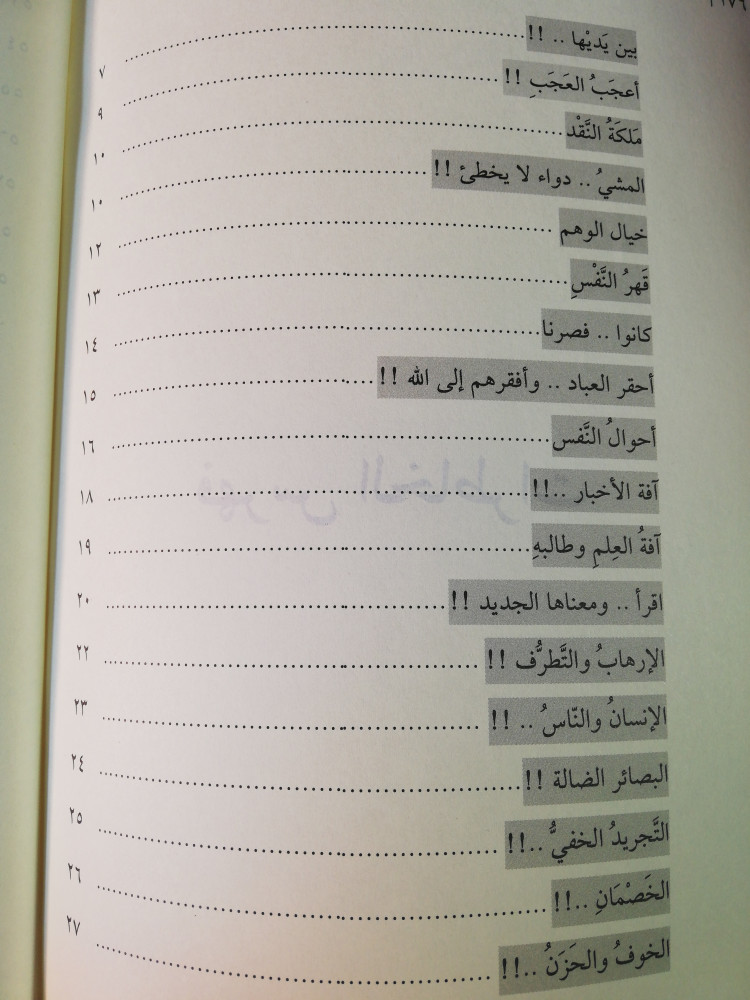 بين يَديْها .. !! ٧
أعجَبُ العَجَبِ !! ٩
مَلكَةُ النَّقْد ١٠
المشيُ .. دواء لا يخطئ !! ١٠
خيال الوهم ١٢
قَهرُ النَّفْسِ ١٣
كانوا .. فصرنا ١٤
أحقر العباد .. وأفقرهم إلى الله !! ١٥
أحوالُ النَّفس ١٦
آفة الأخبار ..!! ١٨
آفةُ العِلمِ وطالبهِ ١٩
اقرأ .. ومعناها الجديد !! ٢٠
الإرهابُ والتَّطرُّف !! ٢٢
الإنسانُ والنّاسُ .. !! ٢٣
البصائر الضالة !! ٢٤
التَّجريدُ الخفيُّ ..!! ٢٥
الخَصْمَانِ ..!! ٢٦
الخوفُ والحَزَنُ ..!! ٢٧